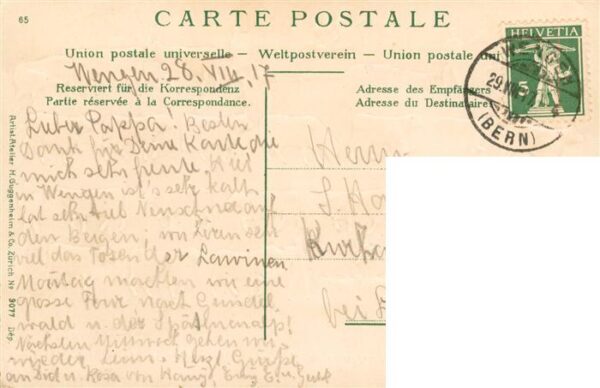 65
CARTE POSTALE
Union postale universelle – Weltpostverein – Union postale uni
Wengen, 28. VIII. 17
Reserviert für die Korrespondenz
Partie réservée à la Correspondance.
Adresse des Empfängers
Adresse du Destinataire
HELVETIA
WENGEN
29.VIII.17
(BERN)
Lieber Pappa! Besten
Dank für Deine Karte die
mich sehr freute.
in Wengen ist's sehr kalt
hat sehr viel Neuschnee auf
den Bergen, wir hören sehr
viel das Tosen der Lawinen
Montag machten wir eine
grosse Tour nach Grindel
wald u. der
Nächsten Mittwoch gehen wir
wieder heim. Herzl. Grüsse
an Dich u. Rosa von
Herrn
Kurha
bei
Artist. Atelier H. Guggenheim & Co. Zürich No 9077 Dép.